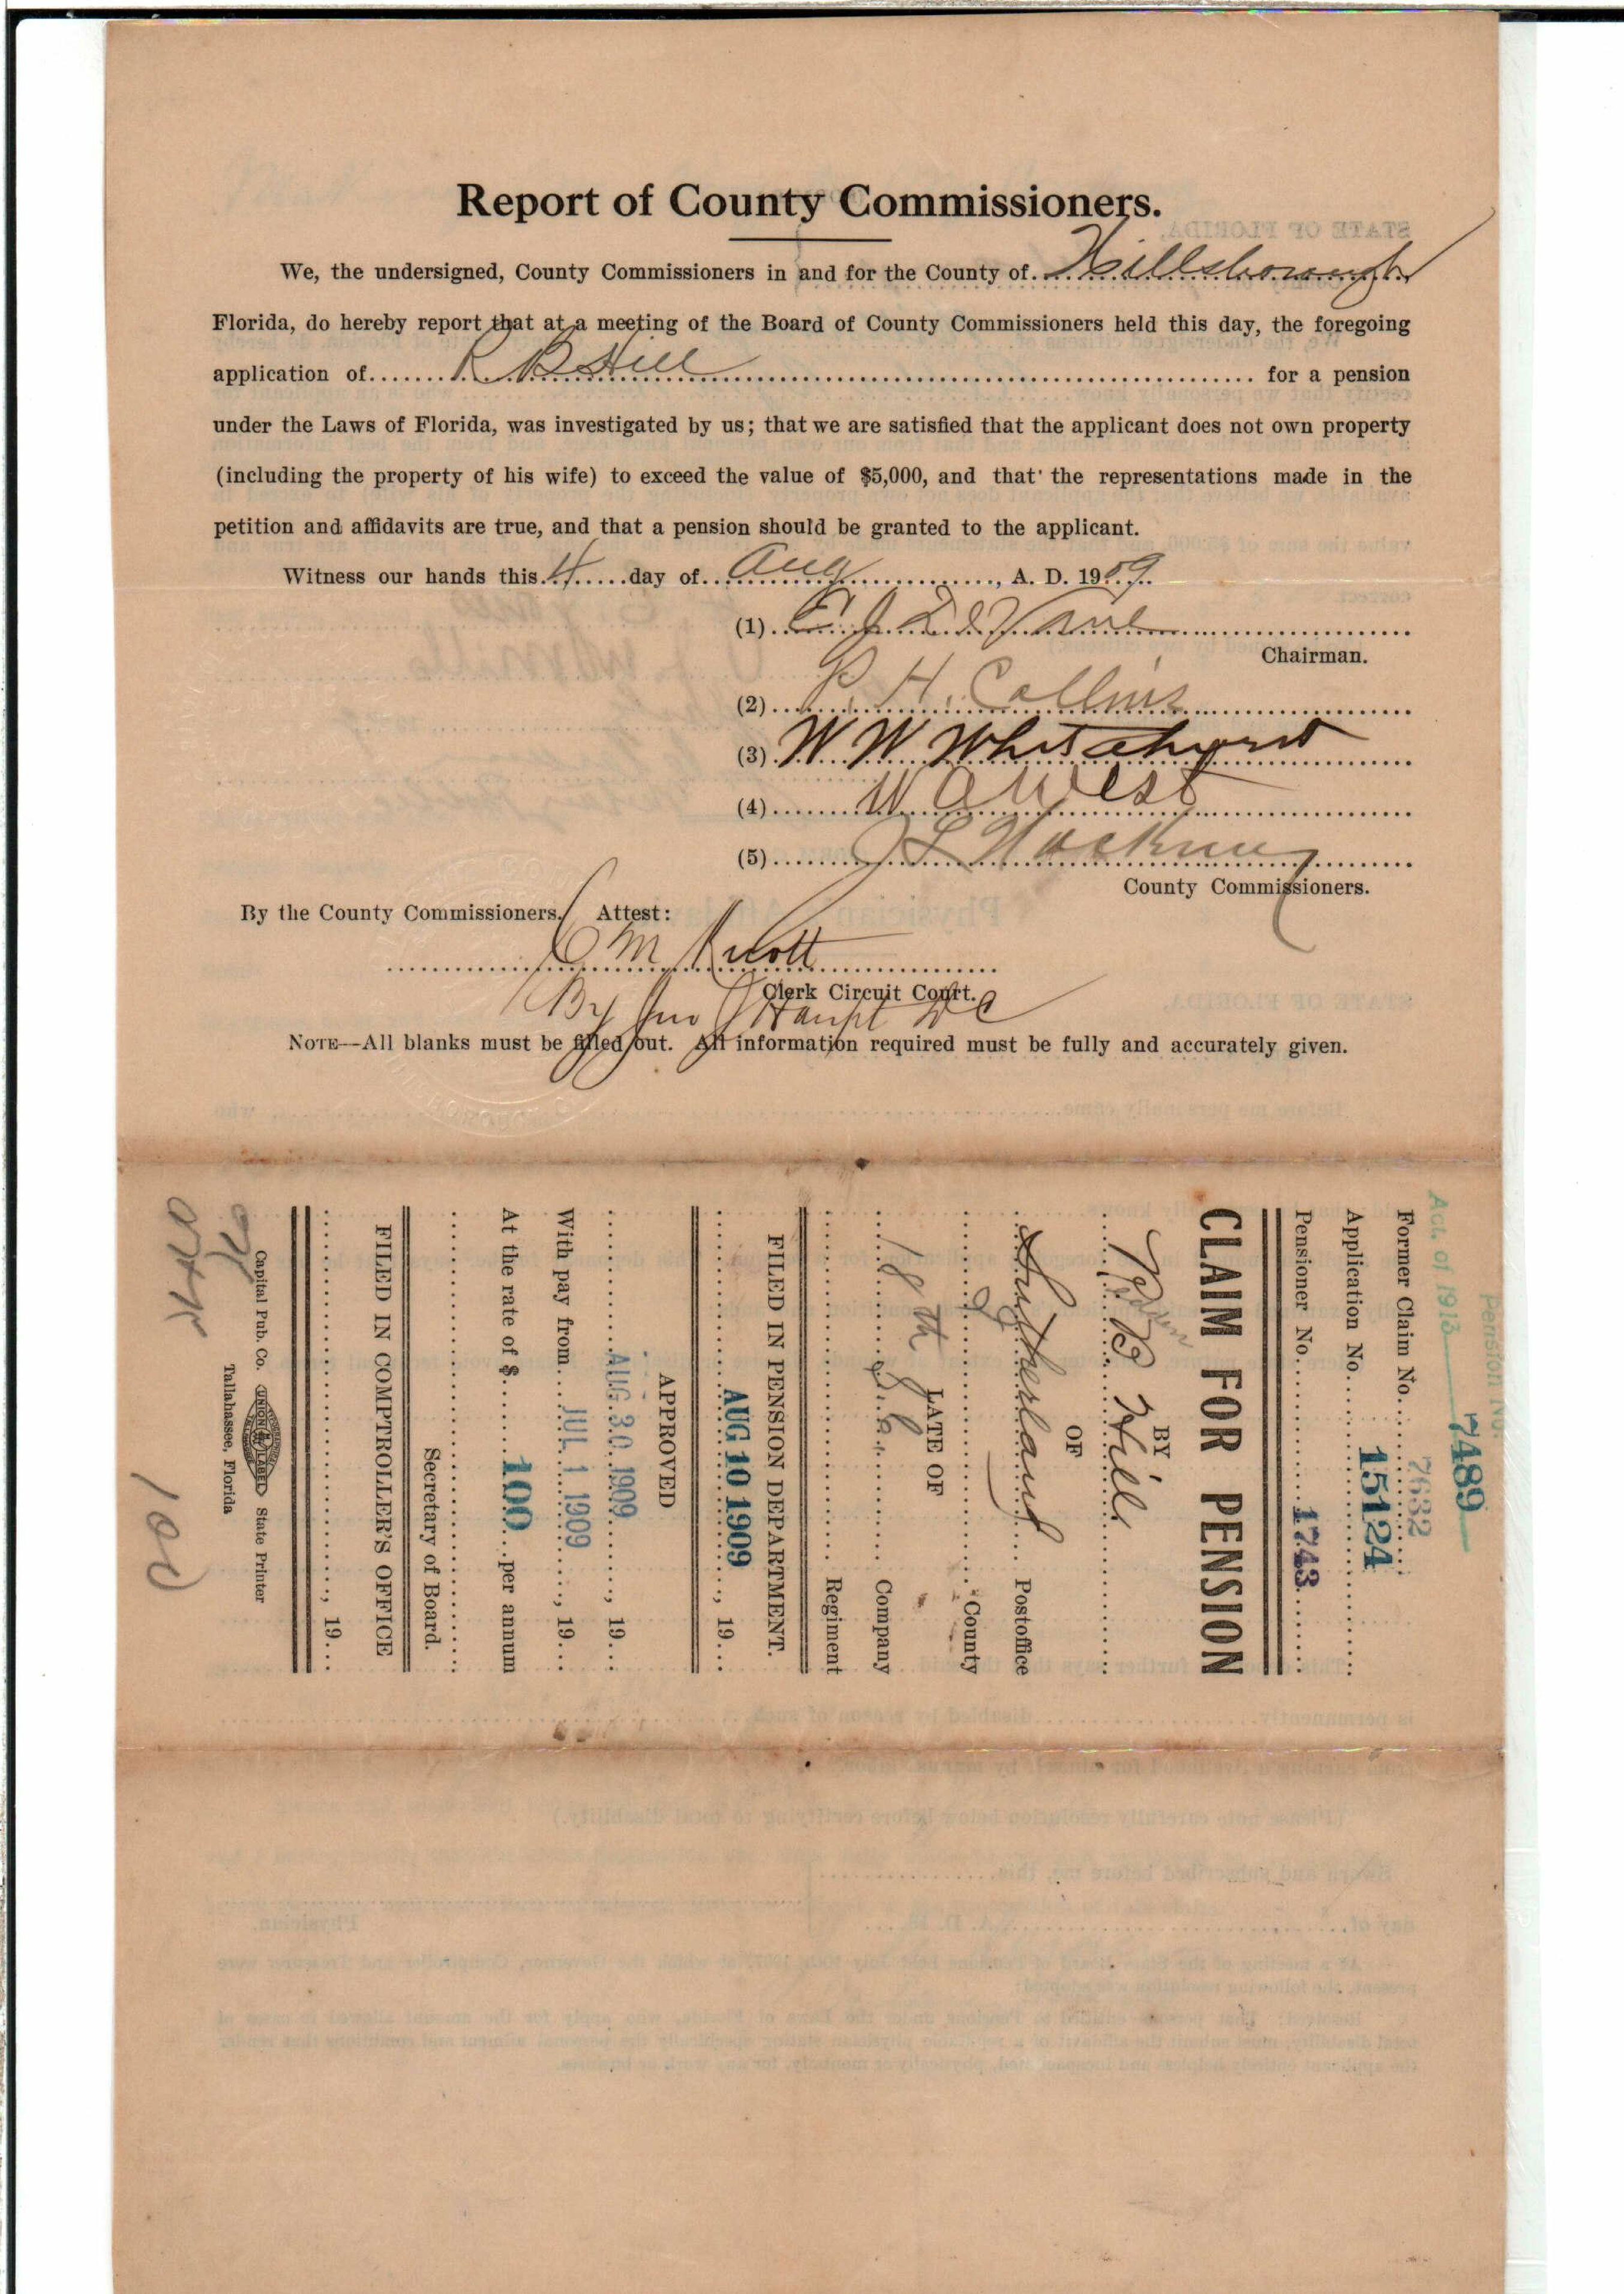 Report of County Commissioners.
We, the undersigned, County Commissioners in and for the County of Hillsborough
Florida, do hereby report that at a meeting of the Board of County Commissioners held this day, the foregoing
application of R B Hill for a pension
under the Laws of Florida, was investigated by us; that we are satisfied that the applicant does not own property
(including the property of his wife) to exceed the value of $5,000, and that the representations made in the
petition and affidavits are true, and that a pension should be granted to the applicant.
Witness our hands this 4 day of Aug, A. D. 1909.
(1) E J DeVane
Chairman.
(2) P. H. Collins
(3) W W Whitehurst
(4) W A West
(5) J L Hackney
County Commissioners.
By the County Commissioners. Attest:
C M Knott
Clerk Circuit Court.
By Jno J Haupt D C
NOTE—All blanks must be filled out. All information required must be fully and accurately given.
Pension No.
7489
Act of 1913
Former Claim No. 7632
Application No. 15124
Pensioner No. 1743
CLAIM FOR PENSION
BY
R B Hill
OF
Sutherland Postoffice
County
LATE OF
18th Ga. Company
Regiment
FILED IN PENSION DEPARTMENT.
AUG 10 1909, 19
APPROVED
AUG 30 1909, 19
With pay from JUL 1 1909, 19
At the rate of $ 100 per annum
Secretary of Board.
FILED IN COMPTROLLER'S OFFICE
, 19
Capital Pub. Co. UNION LABEL State Printer
Tallahassee, Florida
OK
100